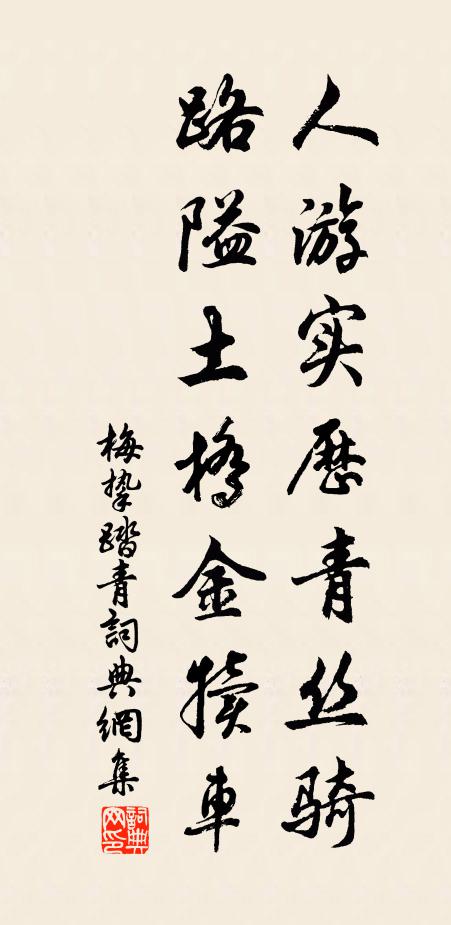 人游实歷青丝骑
路隘土桥金犊車
梅挚踏青詞典網集
詞典网印